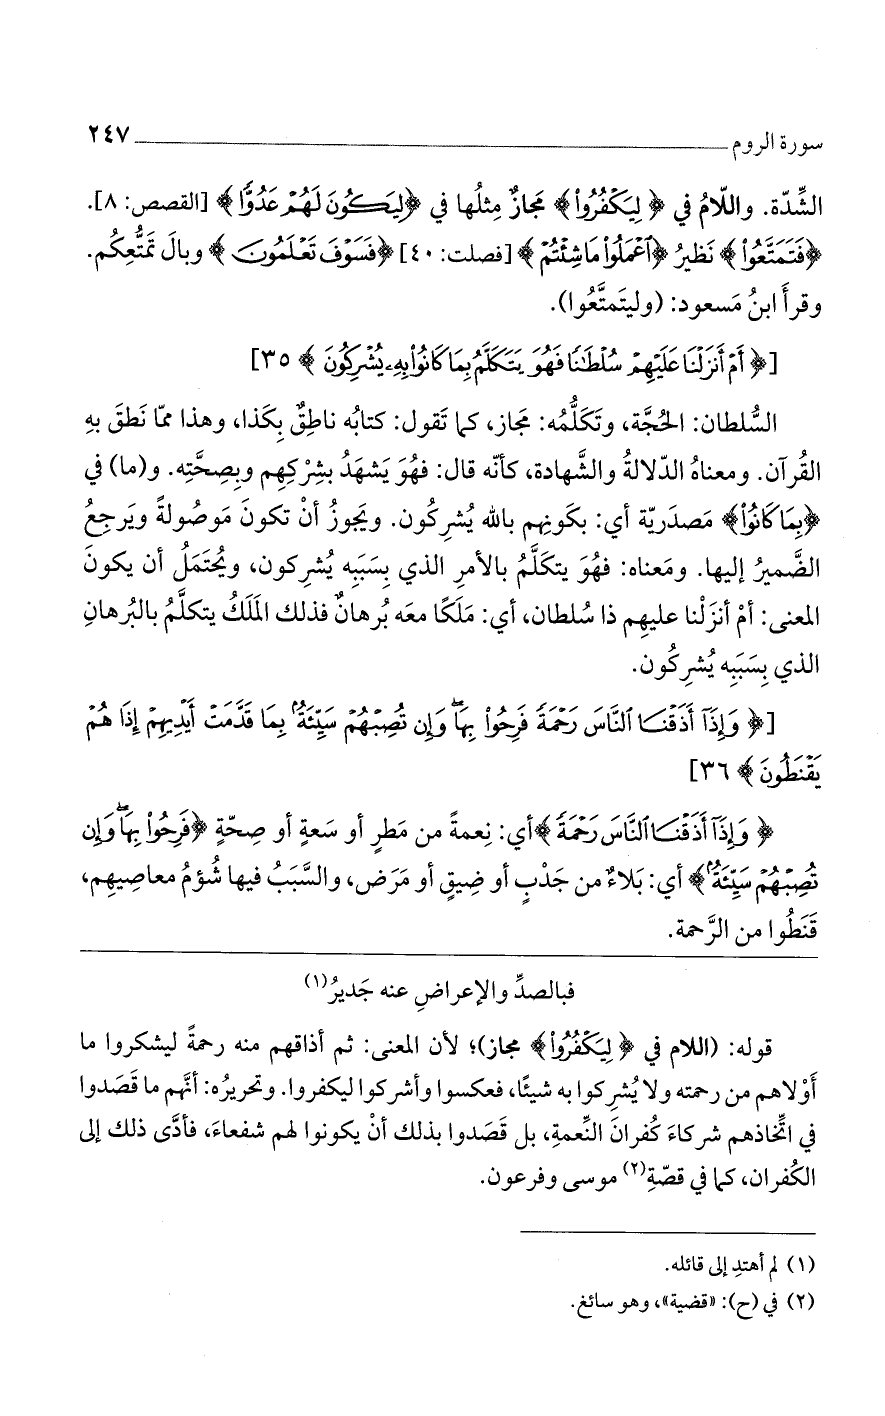 سورة الروم ٢٤٧
الشِّدّة. واللّامُ في ﴿لِيَكْفُرُواْ﴾ مَجازٌ مِثلُها في ﴿لِيَكُونَ لَهُمْ عَدُوًّا﴾ [القصص: ٨].
﴿فَتَمَتَّعُواْ﴾ نَظيرُ ﴿ٱعْمَلُواْ مَا شِئْتُمْ﴾ [فصلت: ٤٠] ﴿فَسَوْفَ تَعْلَمُونَ﴾ وبالَ تَمَتُّعِكُم.
وقرأَ ابنُ مَسعود: (وليَتمتَّعُوا).
[﴿أَمْ أَنزَلْنَا عَلَيْهِمْ سُلْطَٰنًا فَهُوَ يَتَكَلَّمُ بِمَا كَانُواْ بِهِۦ يُشْرِكُونَ﴾ ٣٥]
السُّلطان: الحُجَّة، وتَكَلُّمُه: مَجاز، كما تَقول: كتابُه ناطِقٌ بِكَذا، وهذا ممّا نَطقَ بهِ
القُرآن. ومعناهُ الدّلالةُ والشَّهادة، كأنّه قال: فهُوَ يَشهَدُ بشِرْكِهِم وبِصِحَّتِه. و(ما) في
﴿بِمَا كَانُواْ﴾ مَصدَريّة أي: بكَونِهِم بالله يُشرِكُون. ويَجوزُ أنْ تكونَ مَوصُولةً ويَرجِعُ
الضَّميرُ إليها. ومَعناه: فهُوَ يتكلَّمُ بالأمرِ الذي بِسَبَبِه يُشرِكون، ويُحتَمَلُ أن يكونَ
المعنى: أمْ أنزَلْنا عليهِم ذا سُلطان، أي: مَلَكًا معَه بُرهانٌ فذلك المَلَكُ يتكلَّمُ بالبُرهانِ
الذي بِسَبَبِه يُشرِكُون.
[﴿وَإِذَآ أَذَقْنَا ٱلنَّاسَ رَحْمَةً فَرِحُواْ بِهَاۖ وَإِن تُصِبْهُمْ سَيِّئَةٌۢ بِمَا قَدَّمَتْ أَيْدِيهِمْ إِذَا هُمْ
يَقْنَطُونَ﴾ ٣٦]
﴿وَإِذَآ أَذَقْنَا ٱلنَّاسَ رَحْمَةً﴾ أي: نِعمةً من مَطرٍ أو سَعةٍ أو صِحّةٍ ﴿فَرِحُواْ بِهَاۖ وَإِن
تُصِبْهُمْ سَيِّئَةٌۢ﴾ أي: بَلاءٌ من جَدْبٍ أو ضِيقٍ أو مَرَض، والسَّبَبُ فيها شُؤمُ معاصِيهِم،
قَنَطُوا من الرَّحمة.
فبالصدِّ والإعراضِ عنه جَديرُ(١)
قوله: (اللام في ﴿لِيَكْفُرُواْ﴾ مجاز)؛ لأن المعنى: ثم أذاقهم منه رحمةً ليشكروا ما
أَوْلاهم من رحمته ولا يُشرِكوا به شيئًا، فعكسوا وأشركوا ليكفروا. وتحريرُه: أنَّهم ما قَصَدوا
في اتِّخاذهم شركاءَ كُفرانَ النِّعمةِ، بل قَصَدوا بذلك أنْ يكونوا لهم شفعاءَ، فأدَّى ذلك إلى
الكُفران، كما في قصّةِ(٢) موسى وفرعون.
(١) لم أهتدِ إلى قائله.
(٢) في (ح): «قضية»، وهو سائغ.